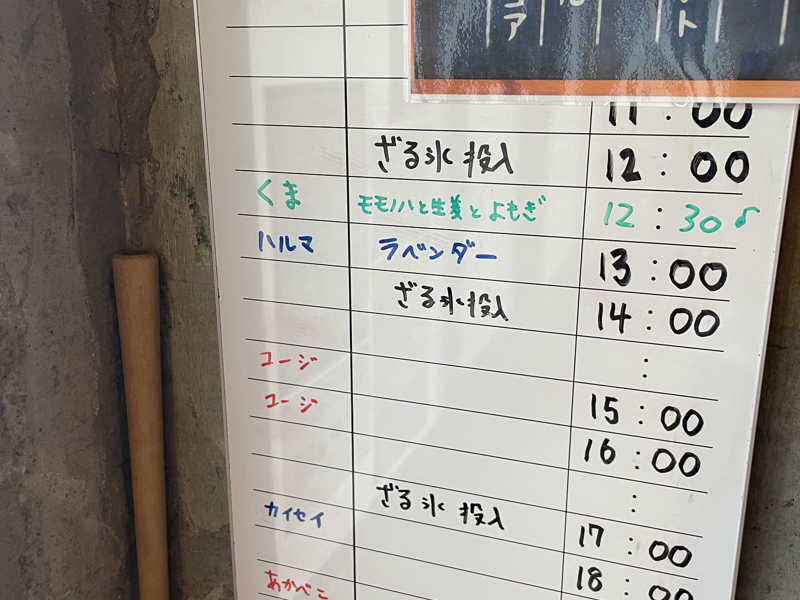 コア
ル
ト
11:00
ざる氷投入 12:00
くま モモノハと生姜とよもぎ 12:30♪
ハルマ ラベンダー 13:00
ざる氷投入 14:00
コージ :
コージ 15:00
16:00
ざる氷投入 :
カイセイ 17:00
あかべこ 18:00